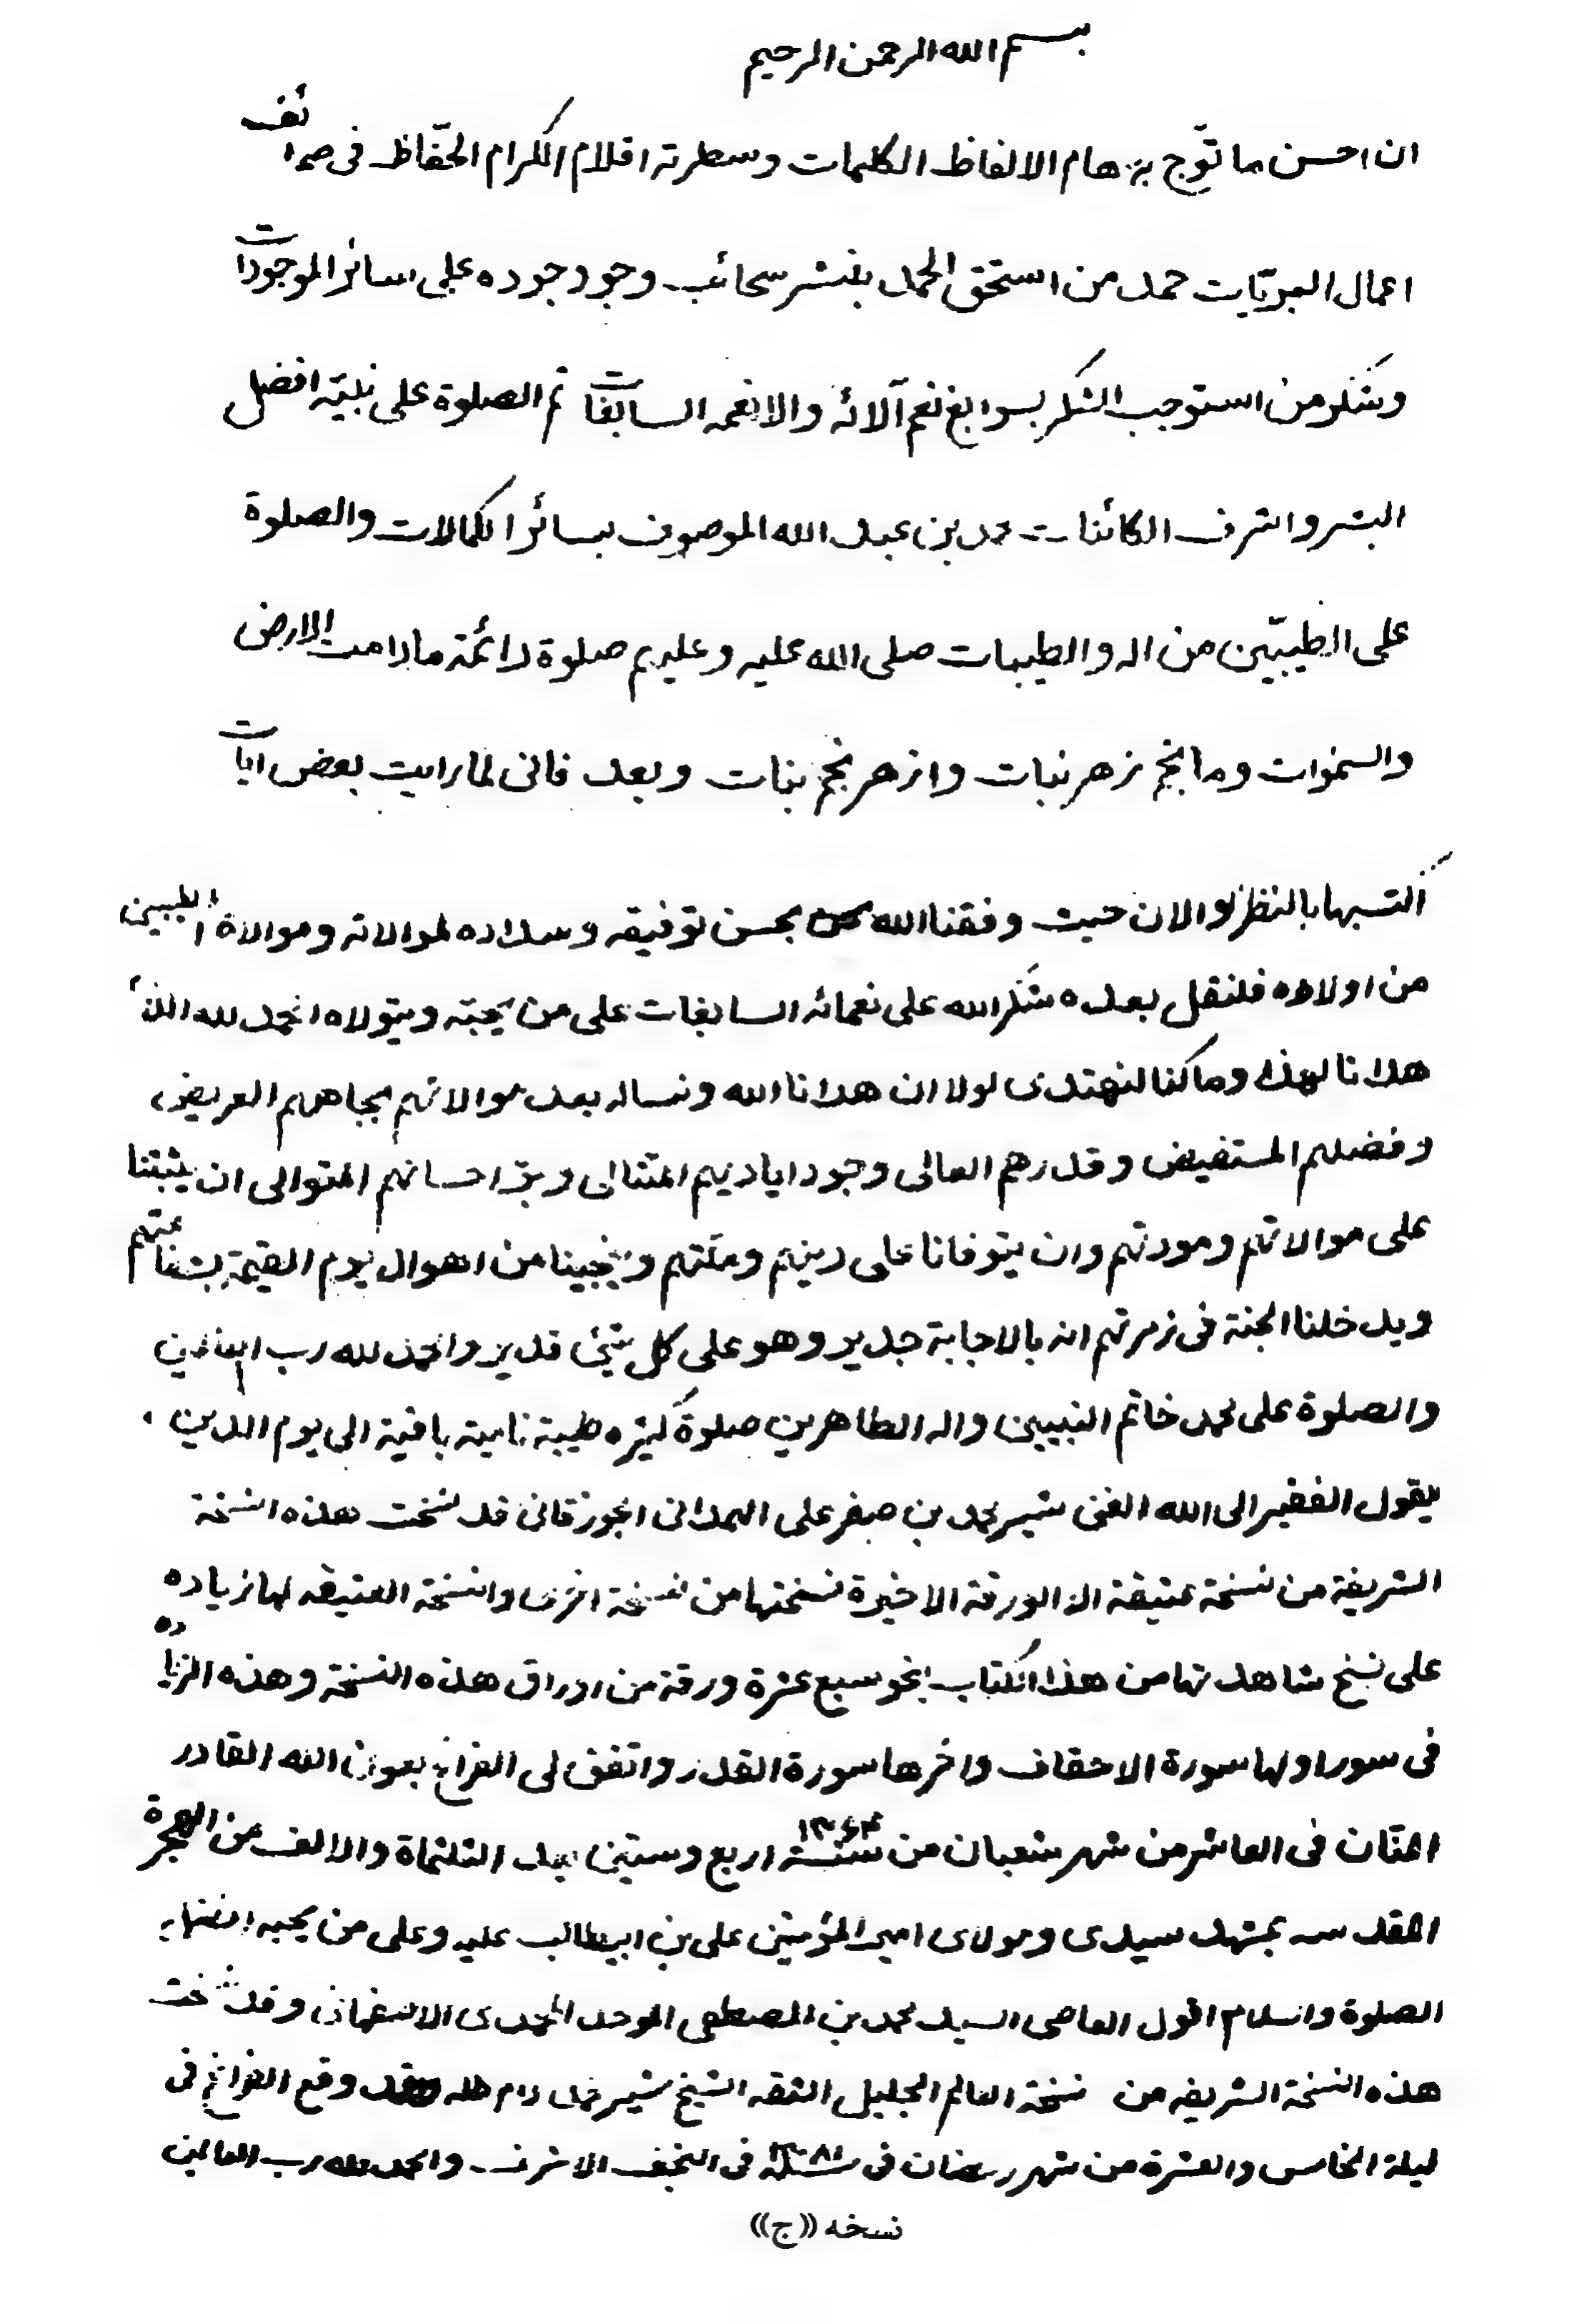 بسم الله الرحمن الرحيم
ان احسن ما توّج به هام الالفاظ الكلمات وسطرته اقلام الكرام الحفّاظ فى صحائف
اعمال البريّات حمد من استحق الحمد بنشر سحائب وجود جوده على سائر الموجودات
وشكر من استوجب الشكر بسوابغ نعم آلائه والانعمه السابغات ثم الصلوة على نبيّه افضل
البشر واشرف الكائنات محمد بن عبد الله الموصوف بسائر الكمالات والصلوة
على الطيبّين من اله والطيبات صلى الله عليه وعليهم صلوة دائمة ما دامت الارض
والسموات وما نجم زهر نبات وازهر نجم بنات وبعد فانى لما رايت بعض ايات
اكتسبها بالنظر والان حيث وفقنا الله بحسن توفيقه وسداده لموالاته وموالاة الطيبين
من اولاده فلنقل بعده شكر الله على نعمائه السابغات على من يحبّه ويتولاه الحمد لله الذى
هدانا لهذا وما كنا لنهتدى لولا ان هدانا الله ونساله بعد موالاتهم بجاههم العريض
وفضلهم المستفيض وقدرهم العالى وجود اياديهم المتتالى وبرّ احسانهم المتوالى ان يثبتنا
على موالاتهم ومودتهم وان يتوفانا على دينهم وملّتهم وينجينا من اهوال يوم القيمة بشفاعتهم
ويدخلنا الجنة فى زمرتهم انه بالاجابة جدير وهو على كل شيئ قدير والحمد لله رب العالمين
والصلوة على محمد خاتم النبيين واله الطاهرين صلوة كثيره طيبة نامية باقية الى يوم الدين
يقول الفقير الى الله الغنى شير محمد بن صفر على الهمدانى الجورقانى قد نسخت هذه النسخة
الشريفة من نسخة عتيقة الا الورقة الاخيرة نسختها من نسخة اخرى والنسخة العتيقه لها زياده
على نسخ شاهدتها من هذا الكتاب بنحو سبع عشرة ورقة من اوراق هذه النسخة وهذه الزياده
فى سور اولها سورة الاحقاف واخرها سورة القدر واتفق لى الفراغ بعون الله القادر
المنّان فى العاشر من شهر شعبان من سنة ١٣٦٤ اربع وستين بعد الثلثماة والالف من الهجرة
المقدسه بمشهد سيدى ومولاى امير المؤمنين على بن ابيطالب عليه وعلى من يحبه افضل
الصلوة والسلام اقول العاصى السيد محمد بن المصطفى الموحد المحمدى الاصفهانى وقد نسخت
هذه النسخة الشريفه من نسخة العالم الجليل الثقه الشيخ شير محمد دام ظله وقد وقع الفراغ فى
ليلة الخامس والعشرة من شهر رمضان فى سنة ١٣٨١ فى النجف الاشرف والحمد لله رب العالمين
نسخه ((ج))